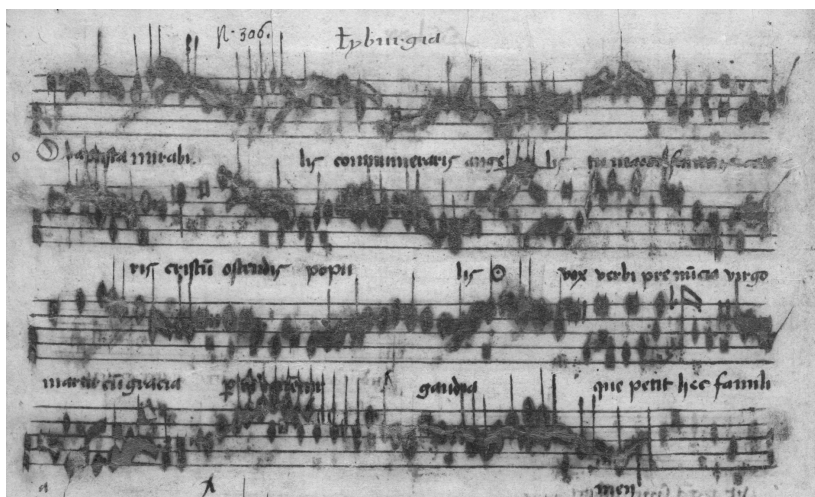 N. 306. tyburgia
baptista mirabi lis connumeraris ange lis tu maior
ris cristū ostendis popu lis vox verbi prenūcia virgo
maria cū gracia gaudia que petit hec famili
a men